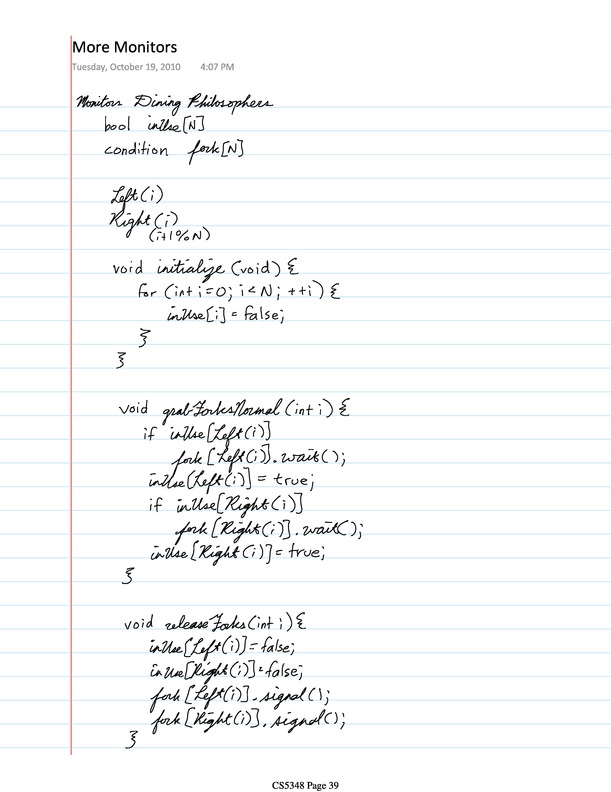 More Monitors
Tuesday, October 19, 2010 4:07 PM
Monitors Dining Philosophers
bool inUse[N]
condition fork[N]
Left(i)
Right(i)
(i+1%N)
void initialize (void) {
for (int i=0; i<N; ++i) {
inUse[i] = false;
}
}
void grabForksNormal (int i) {
if inUse[Left(i)]
fork[Left(i)].wait();
inUse[Left(i)] = true;
if inUse[Right(i)]
fork[Right(i)].wait();
inUse[Right(i)] = true;
}
void releaseForks(int i) {
inUse[Left(i)] = false;
inUse[Right(i)] = false;
fork[Left(i)].signal();
fork[Right(i)].signal();
}
CS5348 Page 39